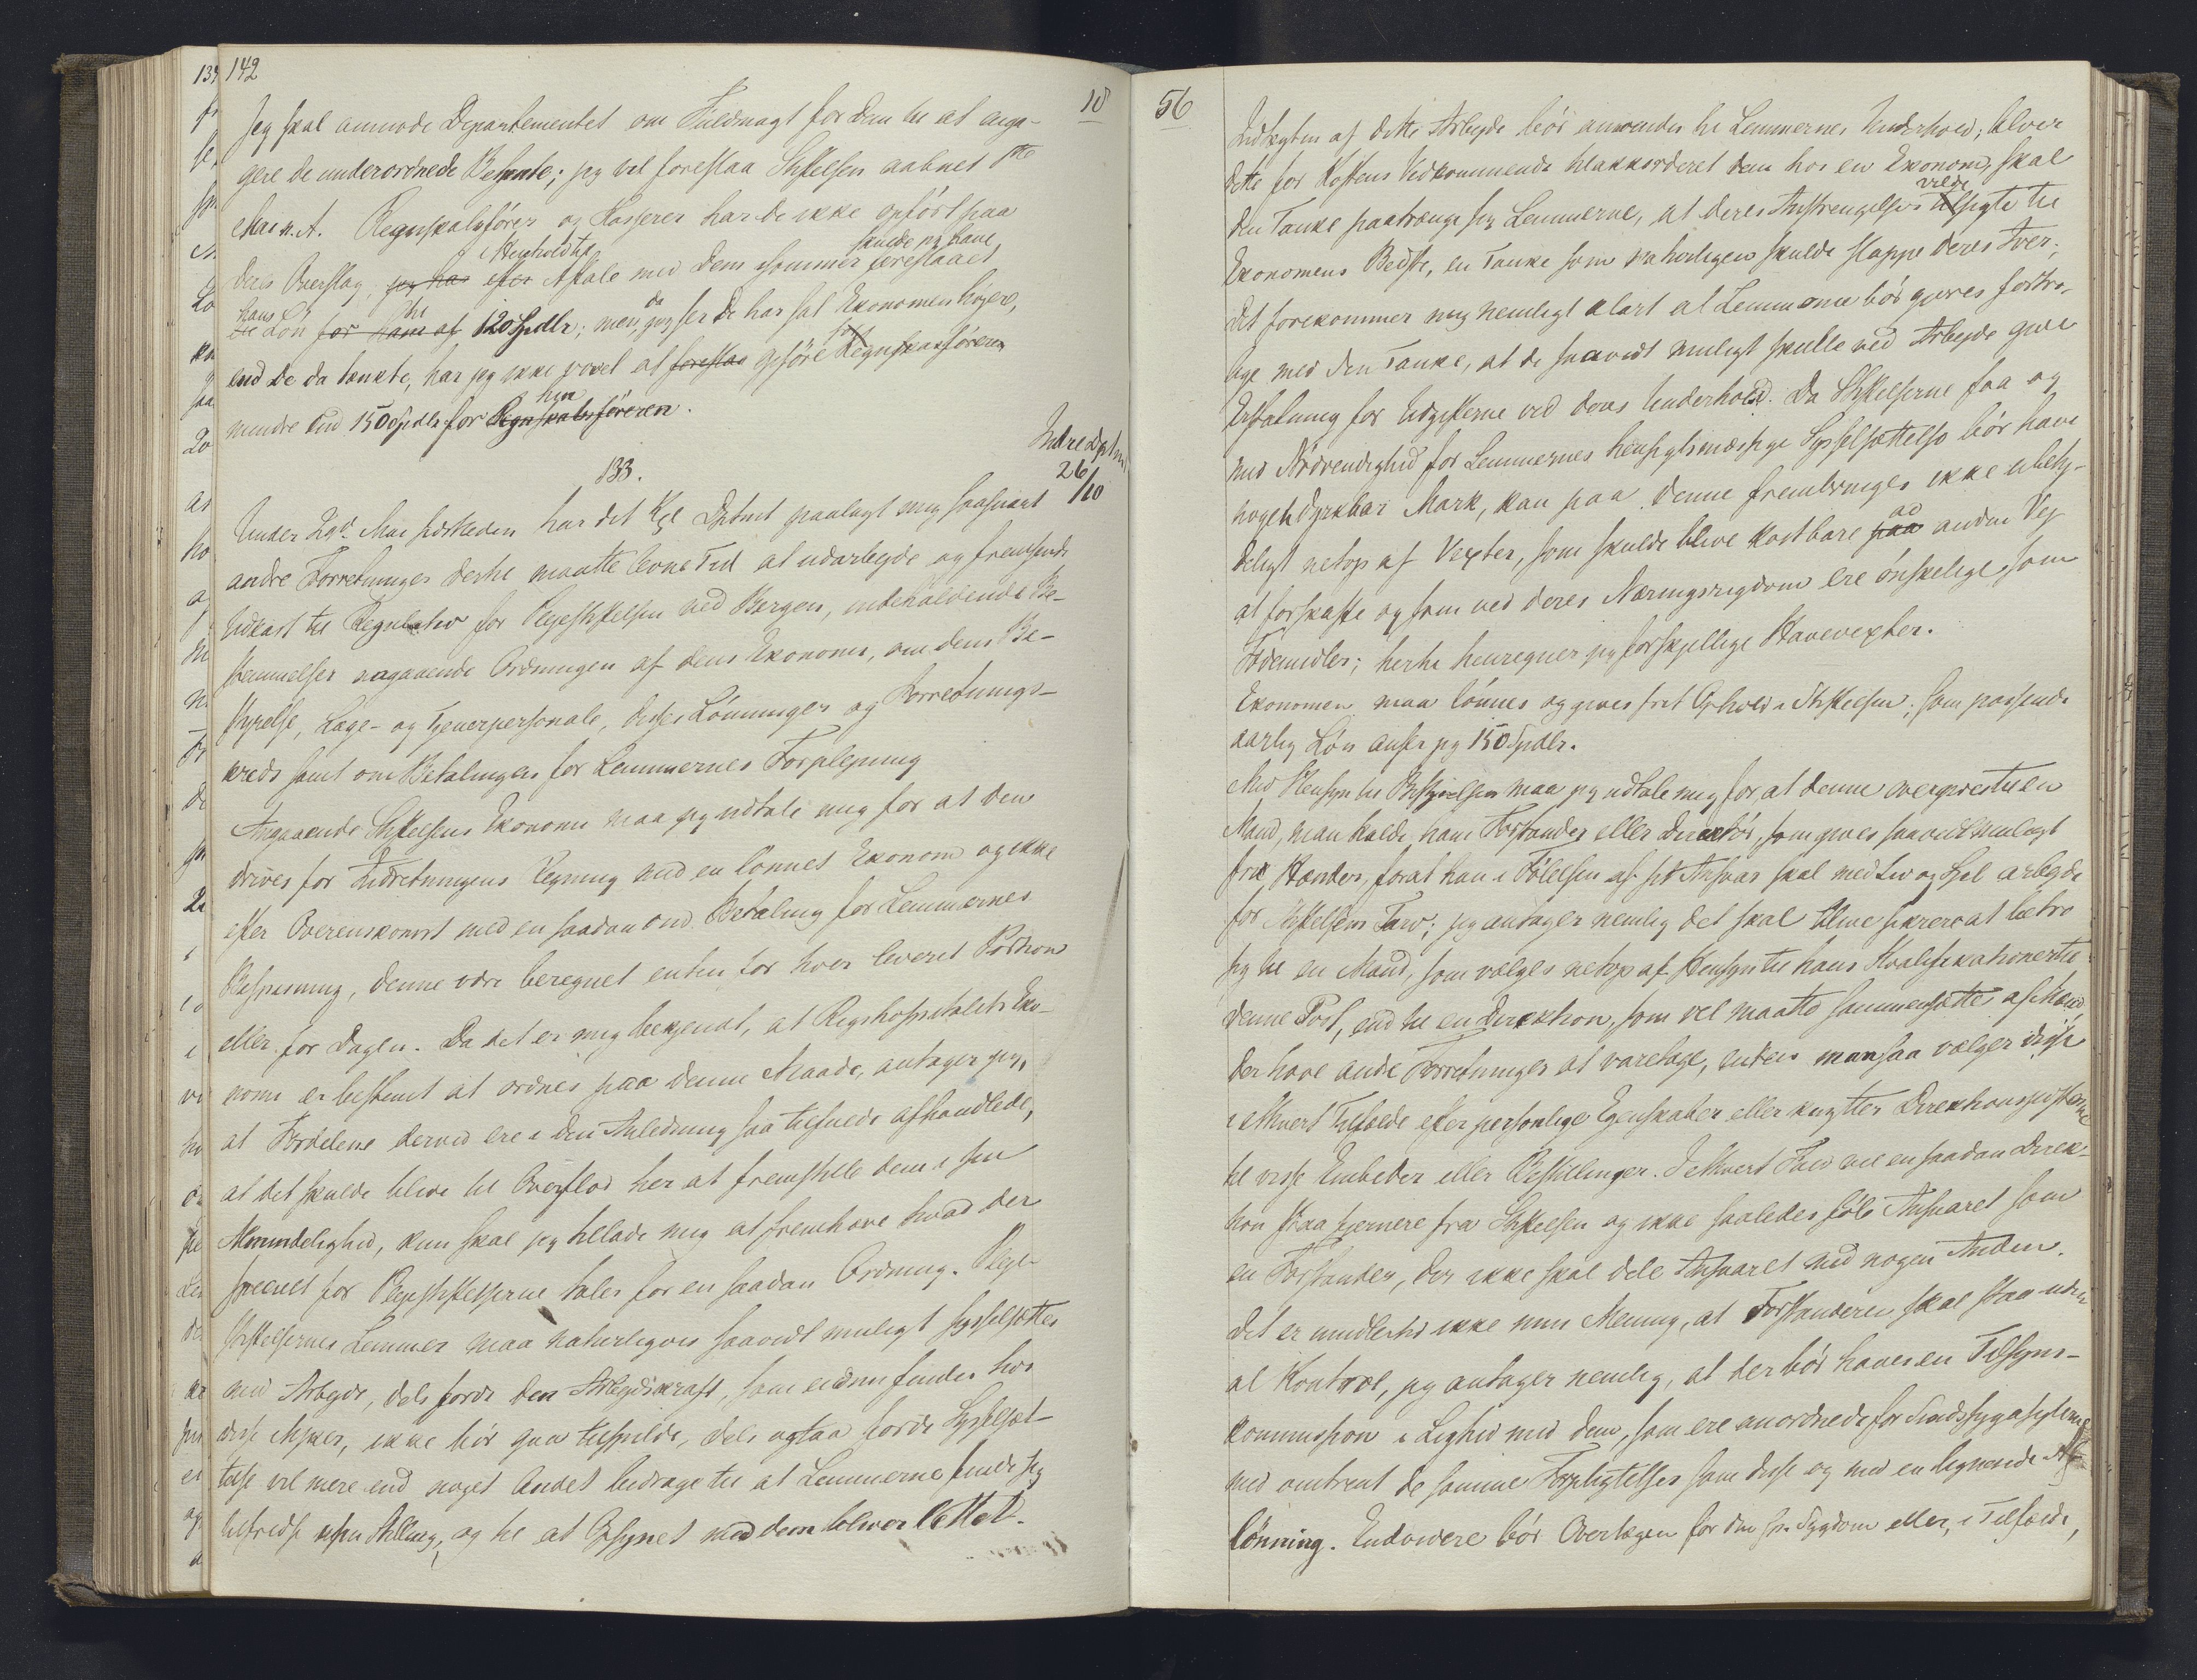 142
Jeg skal anmode Departementet om Fuldmagt for dem til at enga-
gere de underordnede Betjente; jeg vil foreslaa Stiftelsen aabnet 1ste
Mai n. A. Regnskabsfører og Kasserer har De ikke opført paa
Deres Overslag, jeg har i Henhold til efter Aftale med Dem isommer skulde jeg have foreslaaet
hans Løn for ham til af 120 Spdlr; men, da jeg ser De har sat Ekonomen højere,
end De da tænkte, har jeg ikke vovet at foreslaa opføre Regnskabsføreren
mindre end 150 Spdlr for ham Regnskabsføreren.
133.
Indre Dptm
26/10
Under 29d. Mai sidstleden har det Kgl Dptmt paalagt mig saasnart
andre Forretninger dertil maatte levne Tid at udarbejde og fremsende
Udkast til Regulativ for Plejestiftelsen ved Bergen, indeholdende Be-
stemmelser angaaende Ordningen af dens Ekonomi, om dens Be-
styrelse, Læge- og Tjenerpersonale, disses Lønninger og Forretnings-
kreds samt om Betalingen for Lemmernes Forplejning
Angaaende Stiftelsens Ekonomi maa jeg udtale mig for at den
drives for Indretningens Regning med en lønnet Ekonom og ikke
efter Overenskomst med en saadan om Betaling for Lemmernes
Bespisning, denne være beregnet enten for hver leveret Portion
eller for Dagen. Da det er mig bekjendt, at Rigshospitalets Eko-
nomi er bestemt at ordnes paa denne Maade, antager jeg,
at Fordelene derved ere i den Anledning saa tilfulde afhandlede,
at det skulde blive til Overflod her at fremstille dem i sin
Almindelighed, kun skal jeg tillade mig at fremhæve hvad der
specielt for Plejestiftelserne taler for en saadan Ordning. Pleje-
stiftelsernes Lemmer maa naturligvis saavidt muligt sysselsættes
med Arbejde, dels fordi den Arbejdskraft, som endnu findes hos
disse Mskes, ikke bør gaa tilspilde, dels ogsaa fordi Sysselsæt-
telse vil mere end noget Andet bidrage til at Lemmerne finde sig
tilfreds i sin Stilling, og til at Opsynet med dem bliver lettet.
10
56
Indtægten af dette Arbejde bør anvendes til Lemmernes Underhold; bliver
dette for Kostens Vedkommende tilakkorderet dem hos en Ekonom, skal
den Tanke paatrænge sig Lemmerne, at deres Anstrengelser vilde sigte til
Ekonomens Bedste, en Tanke som naturligen skulde slappe deres Iver;
det forekommer mig nemligt klart at Lemmerne bør gjøres fortro-
lige med den Tanke, at de saavidt muligt skulle ved Arbejde give
Erstatning for Udgifterne ved deres Underhold. Da Stiftelserne faa og
med Nødvendighed for Lemmernes hensigtsmæssige Sysselsættelse bør have
noget dyrkbar Mark, kan paa denne frembringes ikke ubety-
deligt netop af Vexter, som skulde blive kostbare paa ad anden Vej
at forskaffe og som ved deres Næringsrigdom ere ønskelige som
Fødemidler; hertil henregner jeg forskjellige Havevexter.
Ekonomen maa lønnes og gives frit Ophold i Stiftelsen; som passende
aarlig Løn anser jeg 150 Spdlr.
Med Hensyn til Bestyrelsen maa jeg udtale mig for, at denne overgives til en
Mand, man kalde ham Forstander eller Direktør, som gives saavidt muligt
frie Hænder, forat han i Følelsen af sit Ansvar skal med Liv og Sjel arbejde
for Stiftelsens Tarv; jeg antager nemlig det skal blive sikrere at betro
sig til en Mand, som vælges netop af Hensyn til hans Kvalifikationer til
denne Post, end til en Direktion, som vel maatte sammensættes af Mænd
der have andre Forretninger at varetage, enten man saa vælger disse
i ethvert Tilfælde efter personlige Egenskaber eller knytter Direktionsposterne
til visse Embeder eller Bestillinger. I ethvert Fald vil en saadan Direk-
tion staa fjernere fra Stiftelsen og ikke saaledes føle Ansvaret som
en Forstander, der ikke skal dele Ansvaret med nogen Anden.
Det er imidlertid ikke min Mening, at Forstanderen skal staa uden
al Kontrol, jeg antager nemlig, at der bør haves en Tilsyns-
kommission i Lighed med dem, som ere anordnede for Sindssygeasylerne
med omtrent de samme Forpligtelser som disse og med en lignende Af-
lønning. Endvidere bør Overlægen for den sp. Sygdom eller, i Tilfælde,